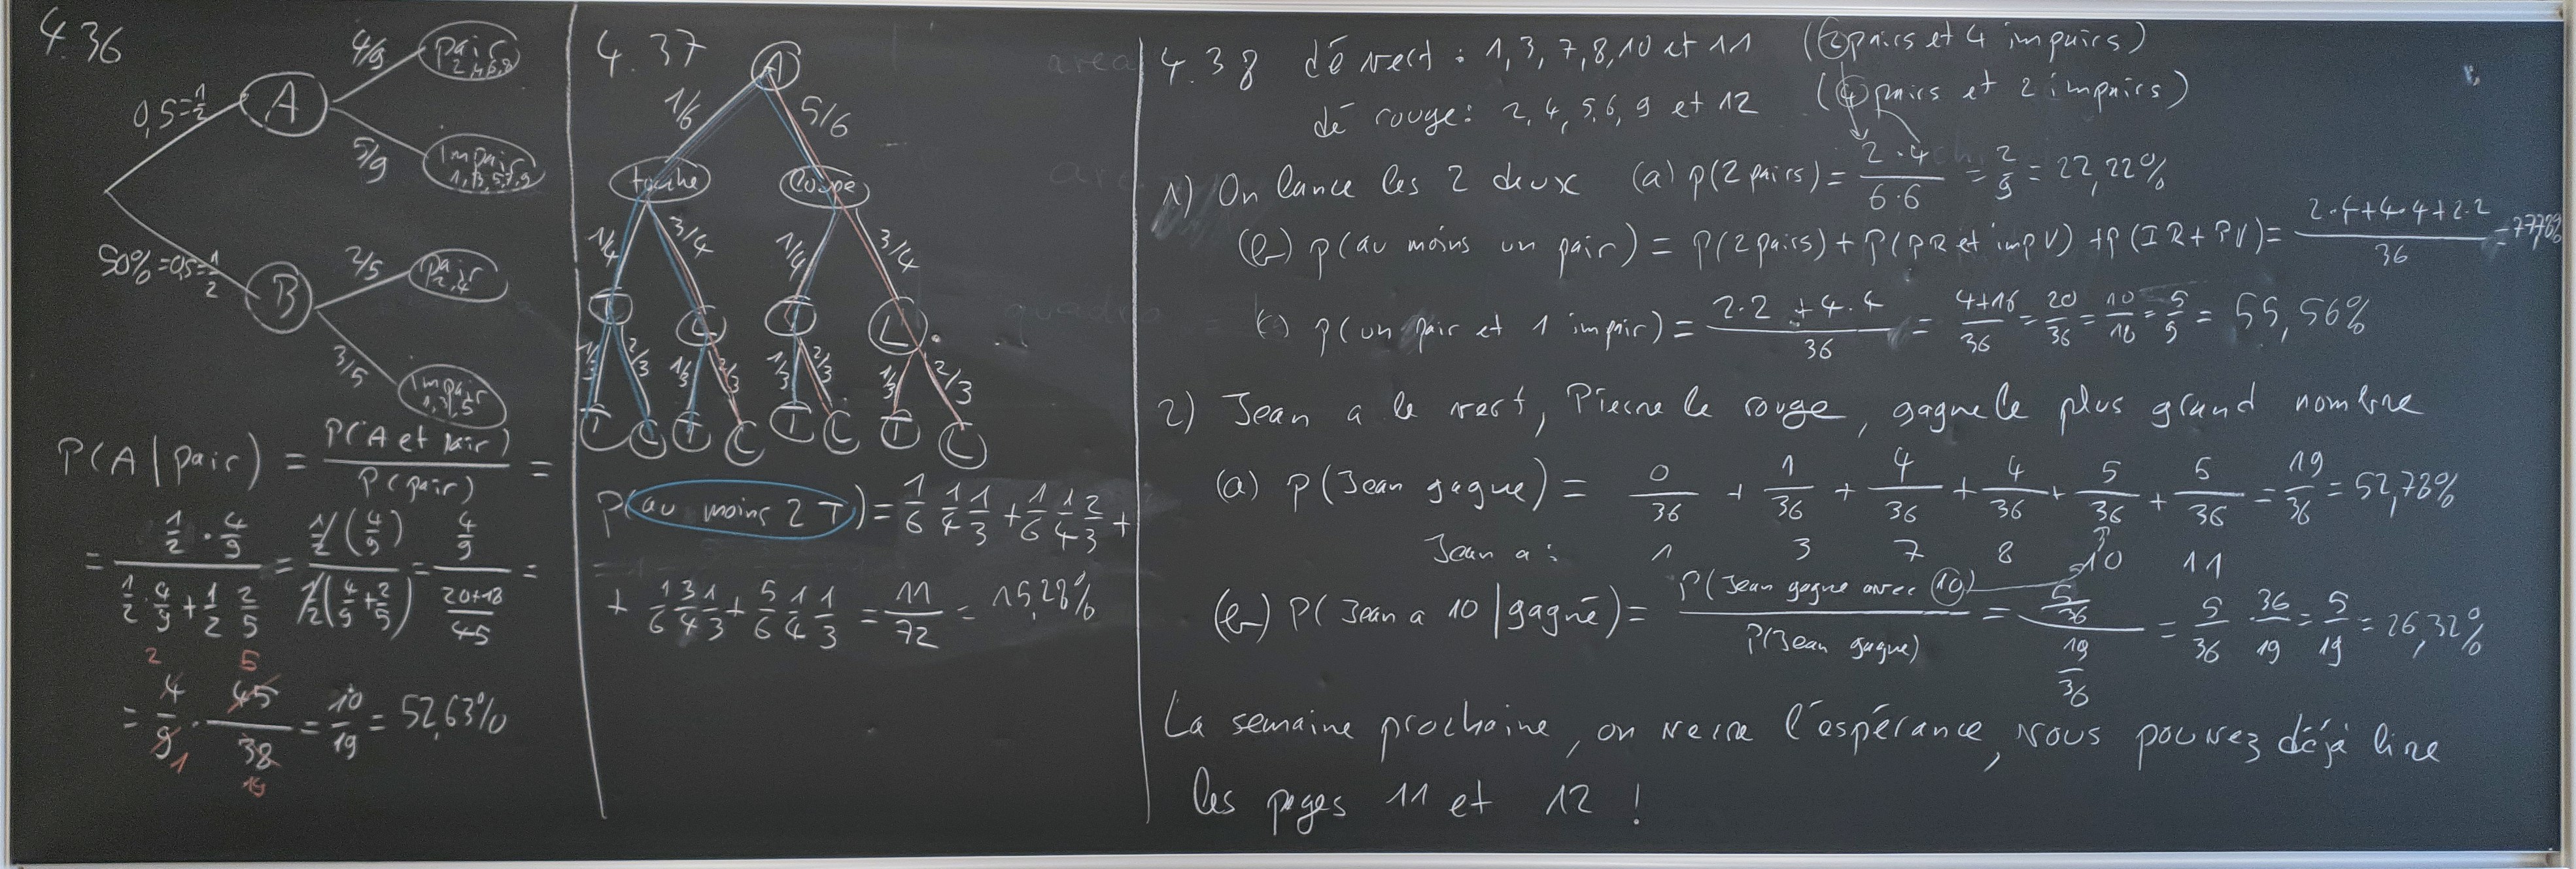 4.36
0,5=1/2
A
4/9
pair
2,4,6,8
5/9
impair
1,3,5,7,9
50%=0,5=1/2
B
2/5
pair
2,4
3/5
impair
1,3,5
P(A|pair) = P(A et pair) / P(pair) =
= (1/2 · 4/9) / (1/2 · 4/9 + 1/2 2/5) = 1/2 (4/9) / 1/2 (4/9 + 2/5) = 4/9 / (20+18)/45 =
2 5
= 4/9 · 45/38 = 10/19 = 52,63%
1 19
4.37
A
1/6 5/6
touche coupe
1/4 3/4 1/4 3/4
T C T C
1/3 2/3 1/3 2/3 1/3 2/3 1/3 2/3
T C T C T C T C
P(au moins 2 T) = 1/6 1/4 1/3 + 1/6 1/4 2/3 +
+ 1/6 3/4 1/3 + 5/6 1/4 1/3 = 11/72 = 15,28%
4.38 dé vert : 1, 3, 7, 8, 10 et 11 (2 pairs et 4 impairs)
dé rouge : 2, 4, 5, 6, 9 et 12 (4 pairs et 2 impairs)
1) On lance les 2 deux (a) p(2 pairs) = 2·4 / 6·6 = 2/9 = 22,22%
(b) p(au moins un pair) = P(2 pairs) + P(PR et imp V) + P(IR + PV) = 2·4+4·4+2·2 / 36 = 77,78%
(c) p(un pair et 1 impair) = 2·2 + 4·4 / 36 = 4+16/36 = 20/36 = 10/18 = 5/9 = 55,56%
2) Jean a le vert, Pierre le rouge, gagne le plus grand nombre
(a) p(Jean gagne) = 0/36 + 1/36 + 4/36 + 4/36 + 5/36 + 5/36 = 19/36 = 52,78%
Jean a : 1 3 7 8 10 11
(b) P(Jean a 10 | gagné) = P(Jean gagne avec 10) / P(Jean gagne) = 5/36 / 19/36 = 5/36 · 36/19 = 5/19 = 26,32%
La semaine prochaine, on verra l'espérance, vous pouvez déjà lire
les pages 11 et 12 !